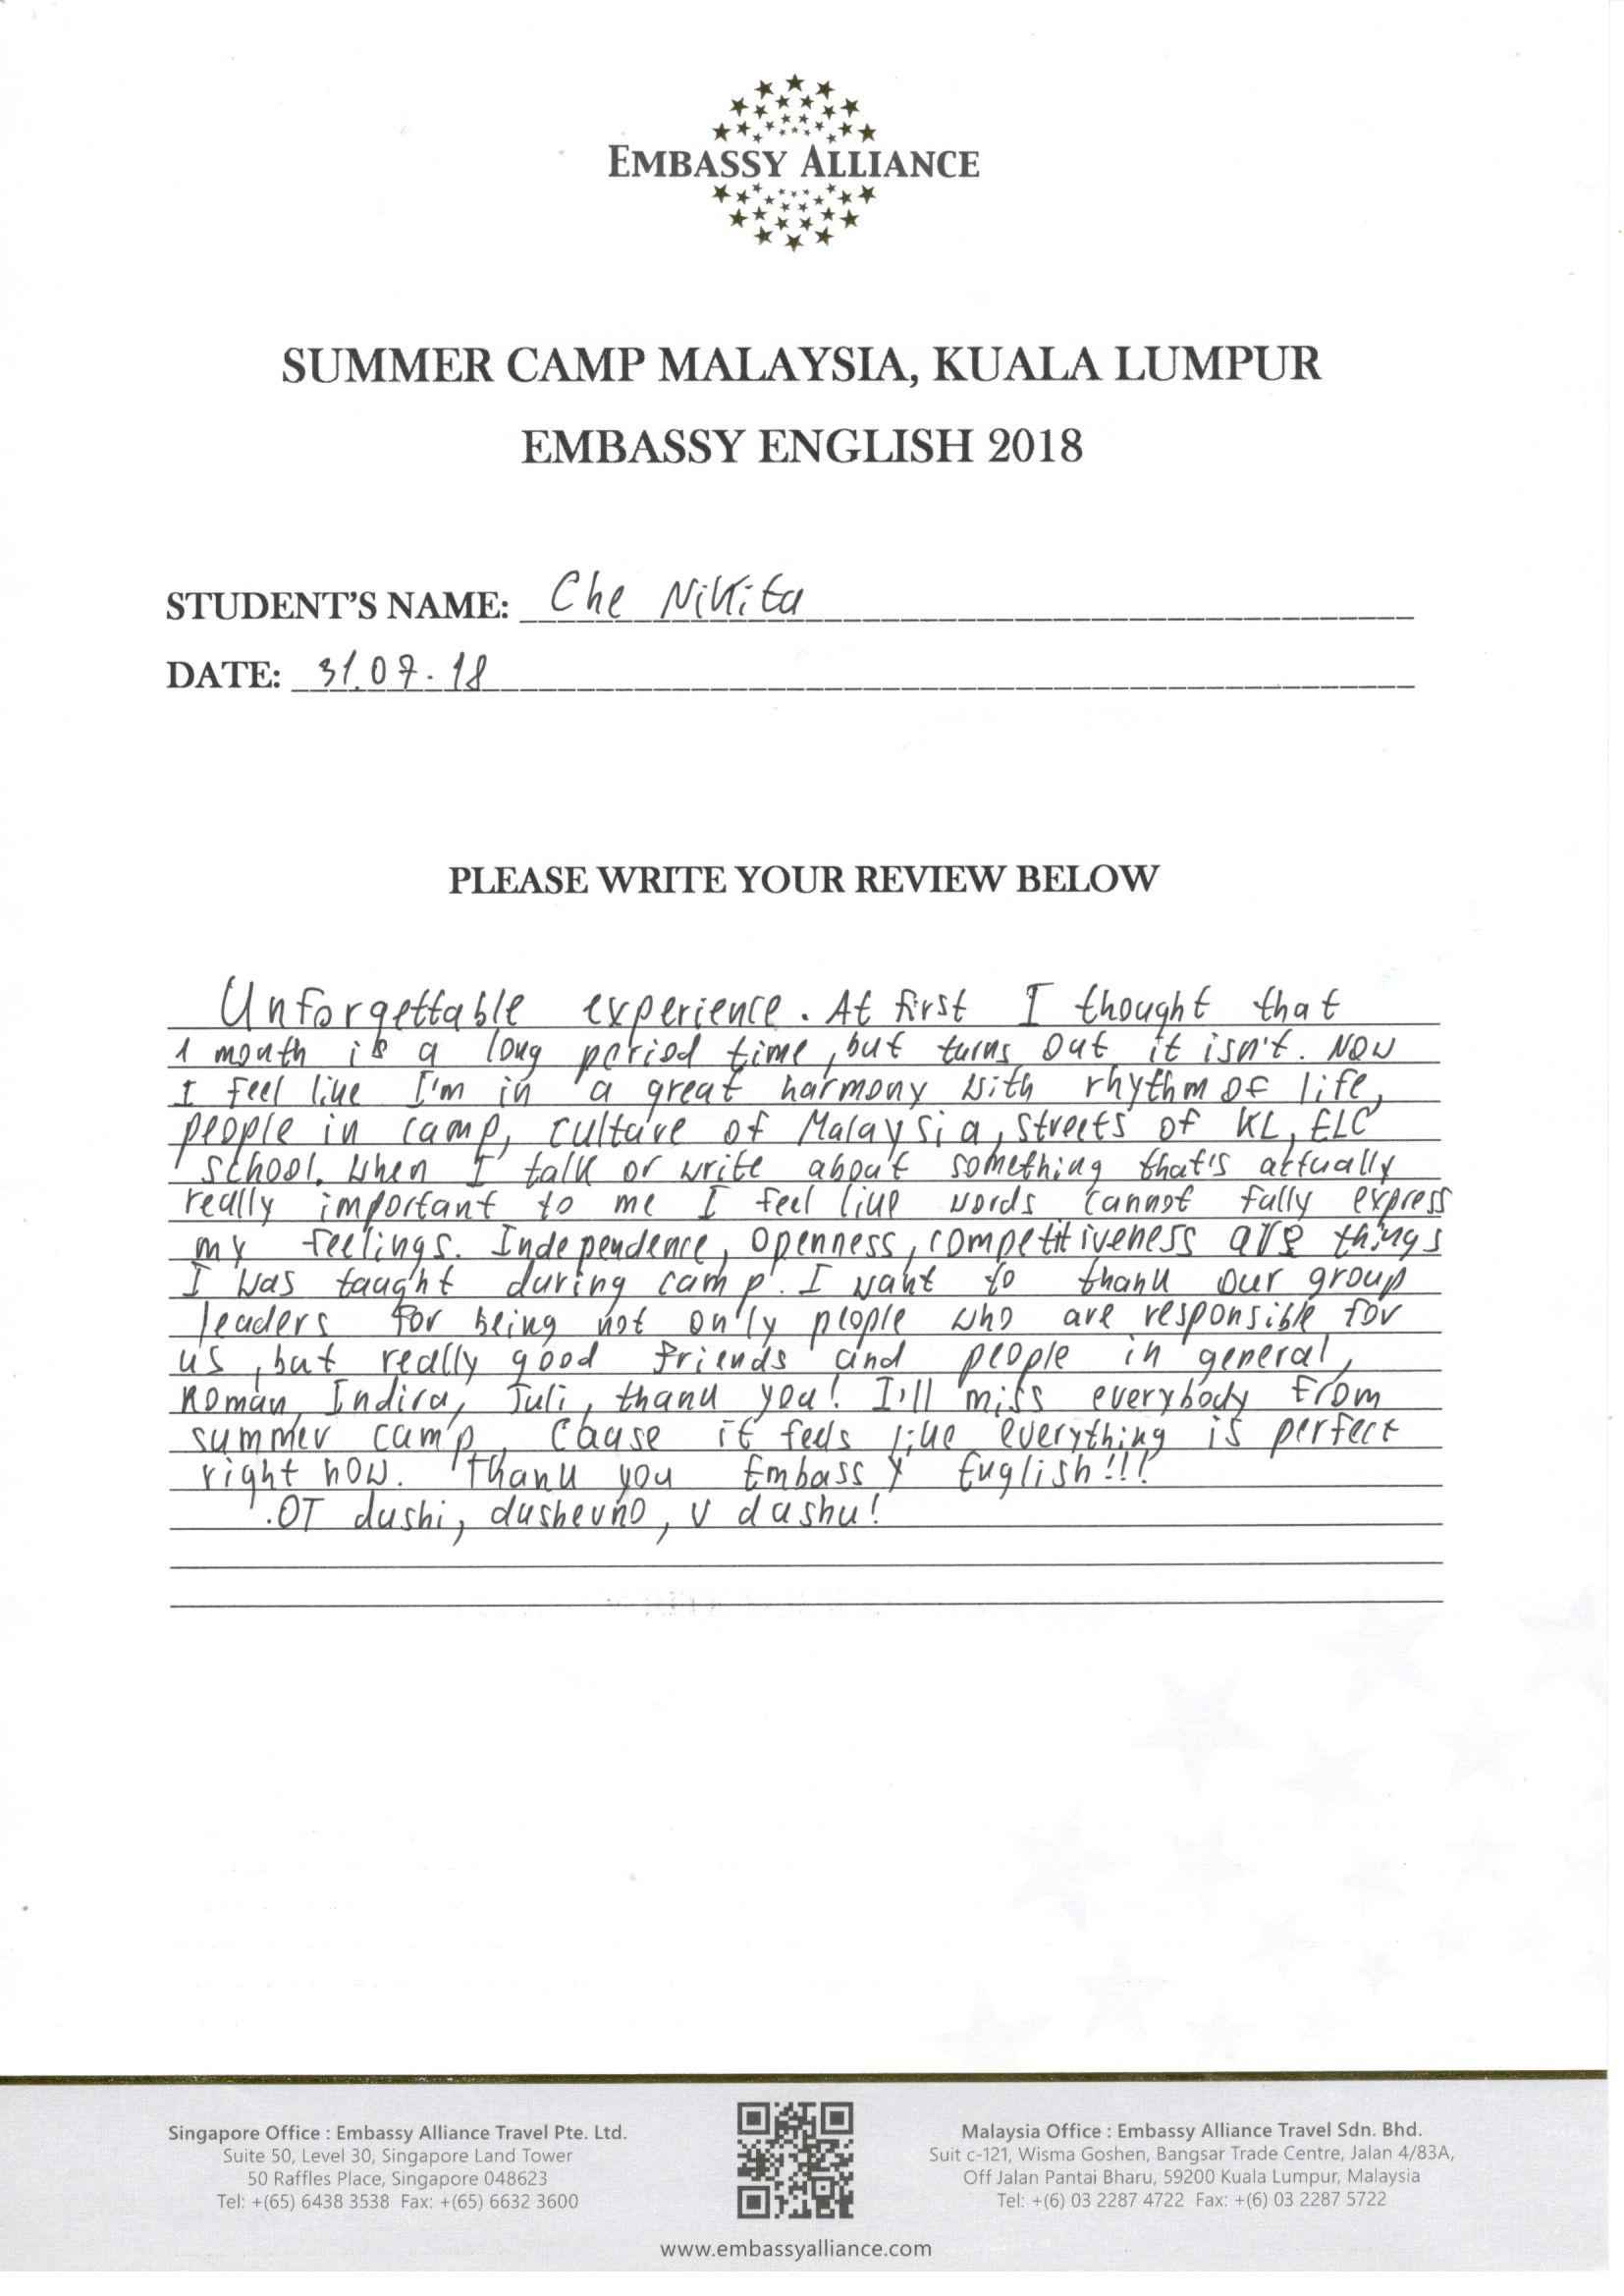 EMBASSY ALLIANCE
SUMMER CAMP MALAYSIA, KUALA LUMPUR
EMBASSY ENGLISH 2018
STUDENT'S NAME: Che Nikita
DATE: 31.07.18
PLEASE WRITE YOUR REVIEW BELOW
Unforgettable experience. At first I thought that
1 month is a long period time, but turns out it isn't. Now
I feel like I'm in a great harmony with rhythm of life,
people in camp, culture of Malaysia, streets of KL, ELC
school. When I talk or write about something that's actually
really important to me I feel like words cannot fully express
my feelings. Independence, openness, competitiveness are things
I was taught during camp. I want to thank our group
leaders for being not only people who are responsible for
us, but really good friends and people in general,
Roman, Indira, Juli, thank you! I'll miss everybody from
summer camp, cause it feels like everything is perfect
right now. Thank you Embassy English!!!
OT dushi, dushevno, v dushu!
Singapore Office : Embassy Alliance Travel Pte. Ltd.
Suite 50, Level 30, Singapore Land Tower
50 Raffles Place, Singapore 048623
Tel: +(65) 6438 3538 Fax: +(65) 6632 3600
Malaysia Office : Embassy Alliance Travel Sdn. Bhd.
Suit c-121, Wisma Goshen, Bangsar Trade Centre, Jalan 4/83A,
Off Jalan Pantai Bharu, 59200 Kuala Lumpur, Malaysia
Tel: +(6) 03 2287 4722 Fax: +(6) 03 2287 5722
www.embassyalliance.com